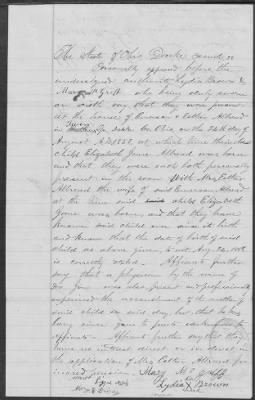 The State of Ohio Darke County ss
Personally appeared before the
undersigned authority Lydia Brown &
Mary M Griff who being duly sworn
on oath say that they were present
at the house of Emerson & Esther Allread
in Twin Tp Darke Co Ohio on the 24th day of
August A.D. 1858, at which time their
child Elizabeth Jane Allread was born
and that they were each both personally
present in the room with Mrs Esther
Allread the wife of said Emerson Allread
at the time said child Elizabeth
Jane was born, and that they have
known said child ever since its birth
and know that the date of birth of said
child as above given, to wit, Aug 24, 1858
is correctly stated. Affiants further
say that a physician by the name of
Dr. was also present and professionally
the of the mother of
said child on said day, but that he has
long since gone to parts unknown to
affiants. Affiants further say that they
have no interest direct or indirect in
the application of Mrs Esther Allread for
pension.
Mary M Griff
Lydia X Brown
mark